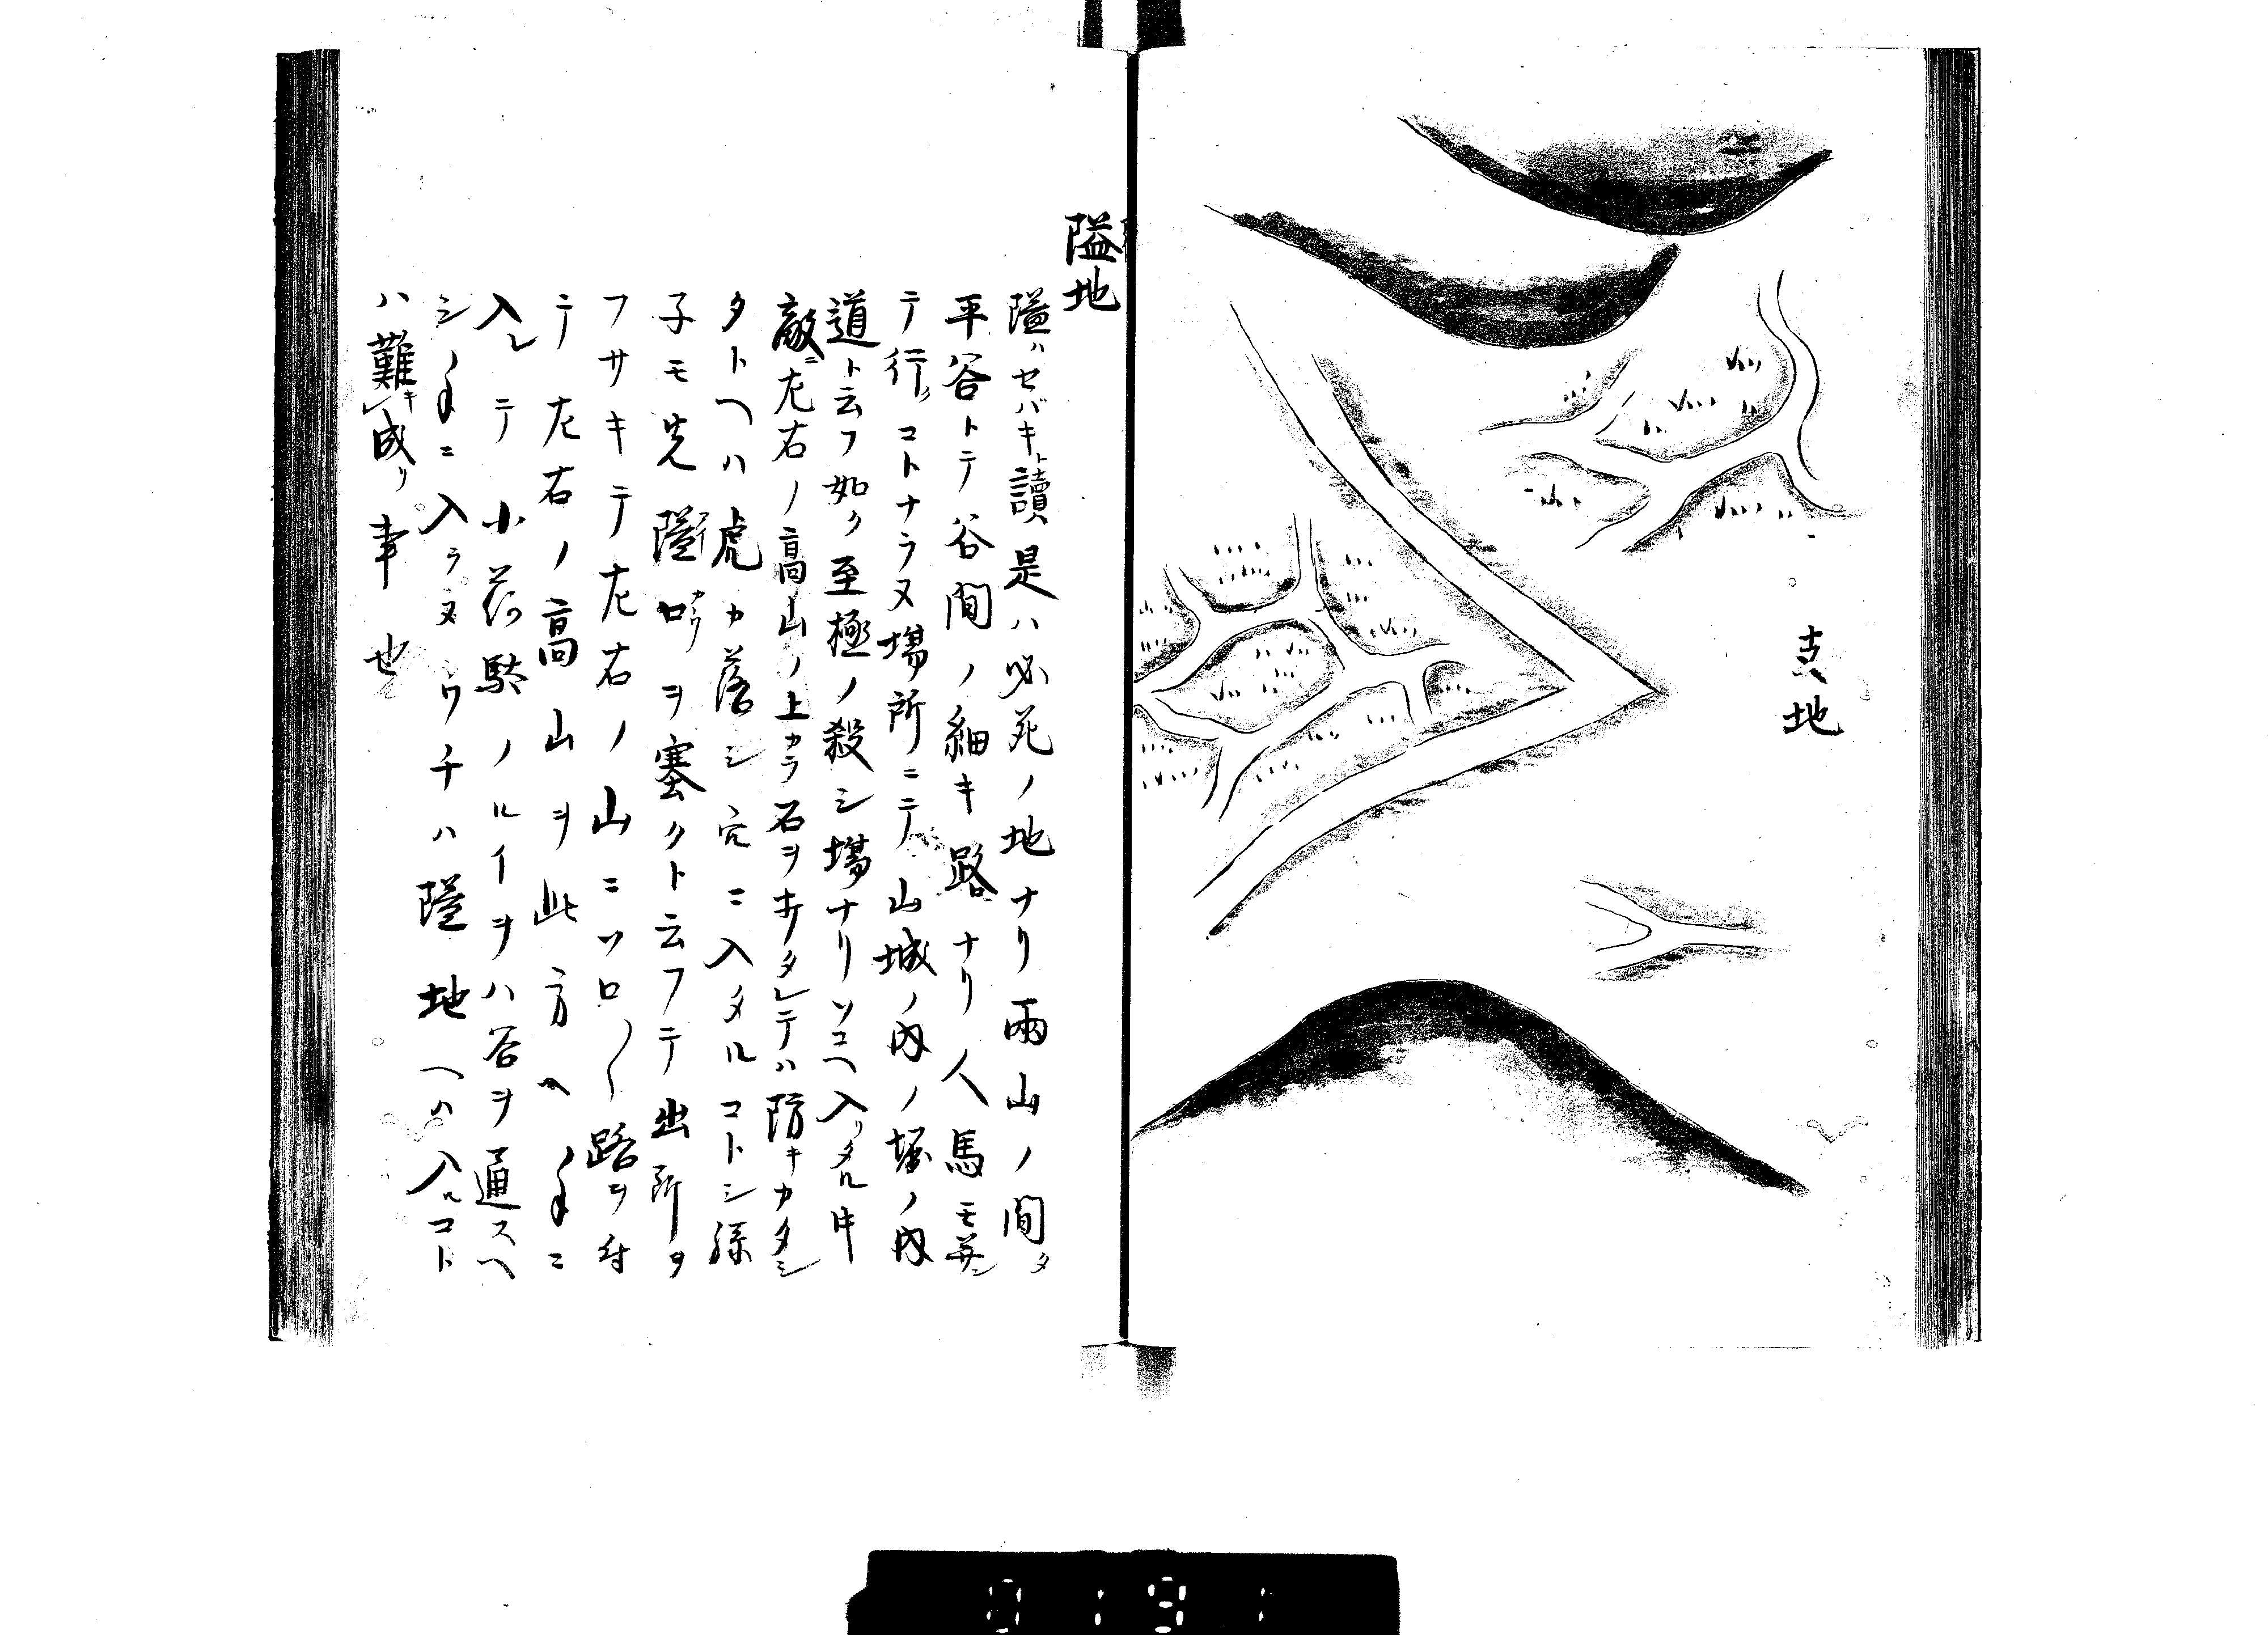 支地
隘地
隘ハセバキト讀是ハ必死ノ地ナリ兩山ノ間タ
平谷トテ谷間ノ細キ路ナリ人馬モ並ン
テ行コトナラヌ場所ニテ山城ノ内ノ堀ノ内
道ト云フ如ク至極ノ殺シ場ナリソコヘ入リタル時
敵ニ左右ノ高山ノ上カラ石ヲ タレテハ防キカタシ
タトヘハ虎カ落シ穴ニ入タルコトシ孫
子モ先隘口ヲ塞クト云フテ出所ヲ
フサキテ左右ノ山ニソロ〱路ヲ付
テ左右ノ高山ヲ此方ヘ手ニ
入レテ小荷駄ノルイヲハ谷ヲ通スヘ
シ手ニ入ラヌウチハ隘地ヘハ入ルコト
ハ難キ成リ事也
0191